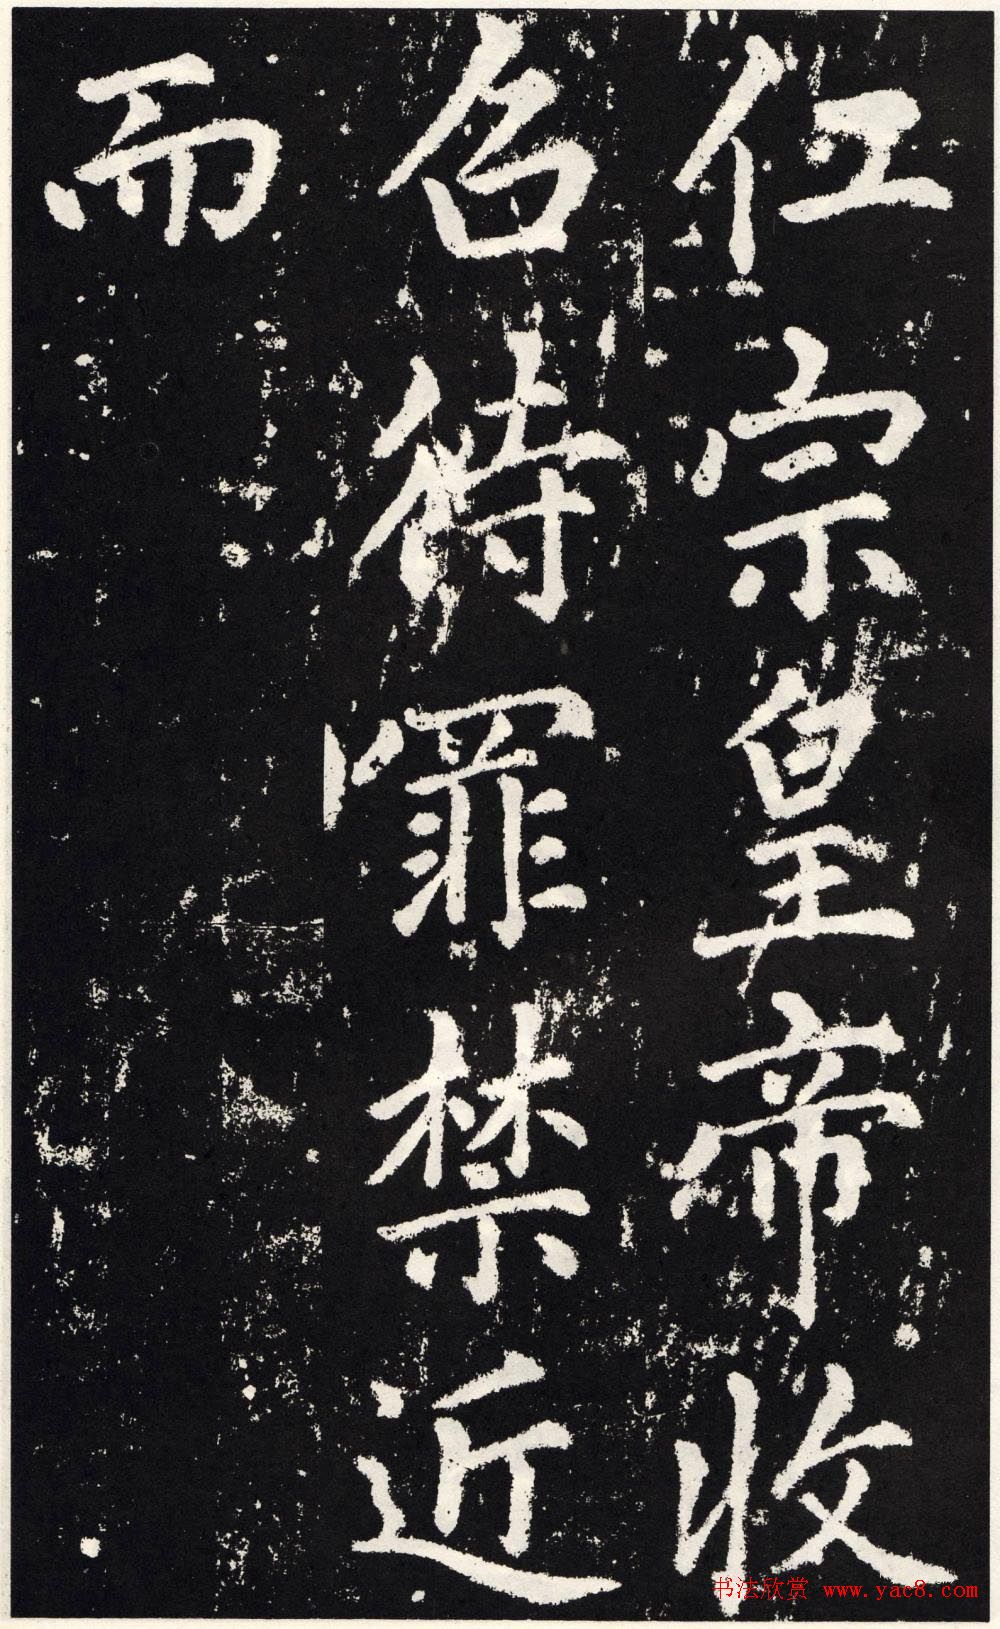 仁宗皇帝收
召待罪禁近
而
书法欣赏 www.yac8.com